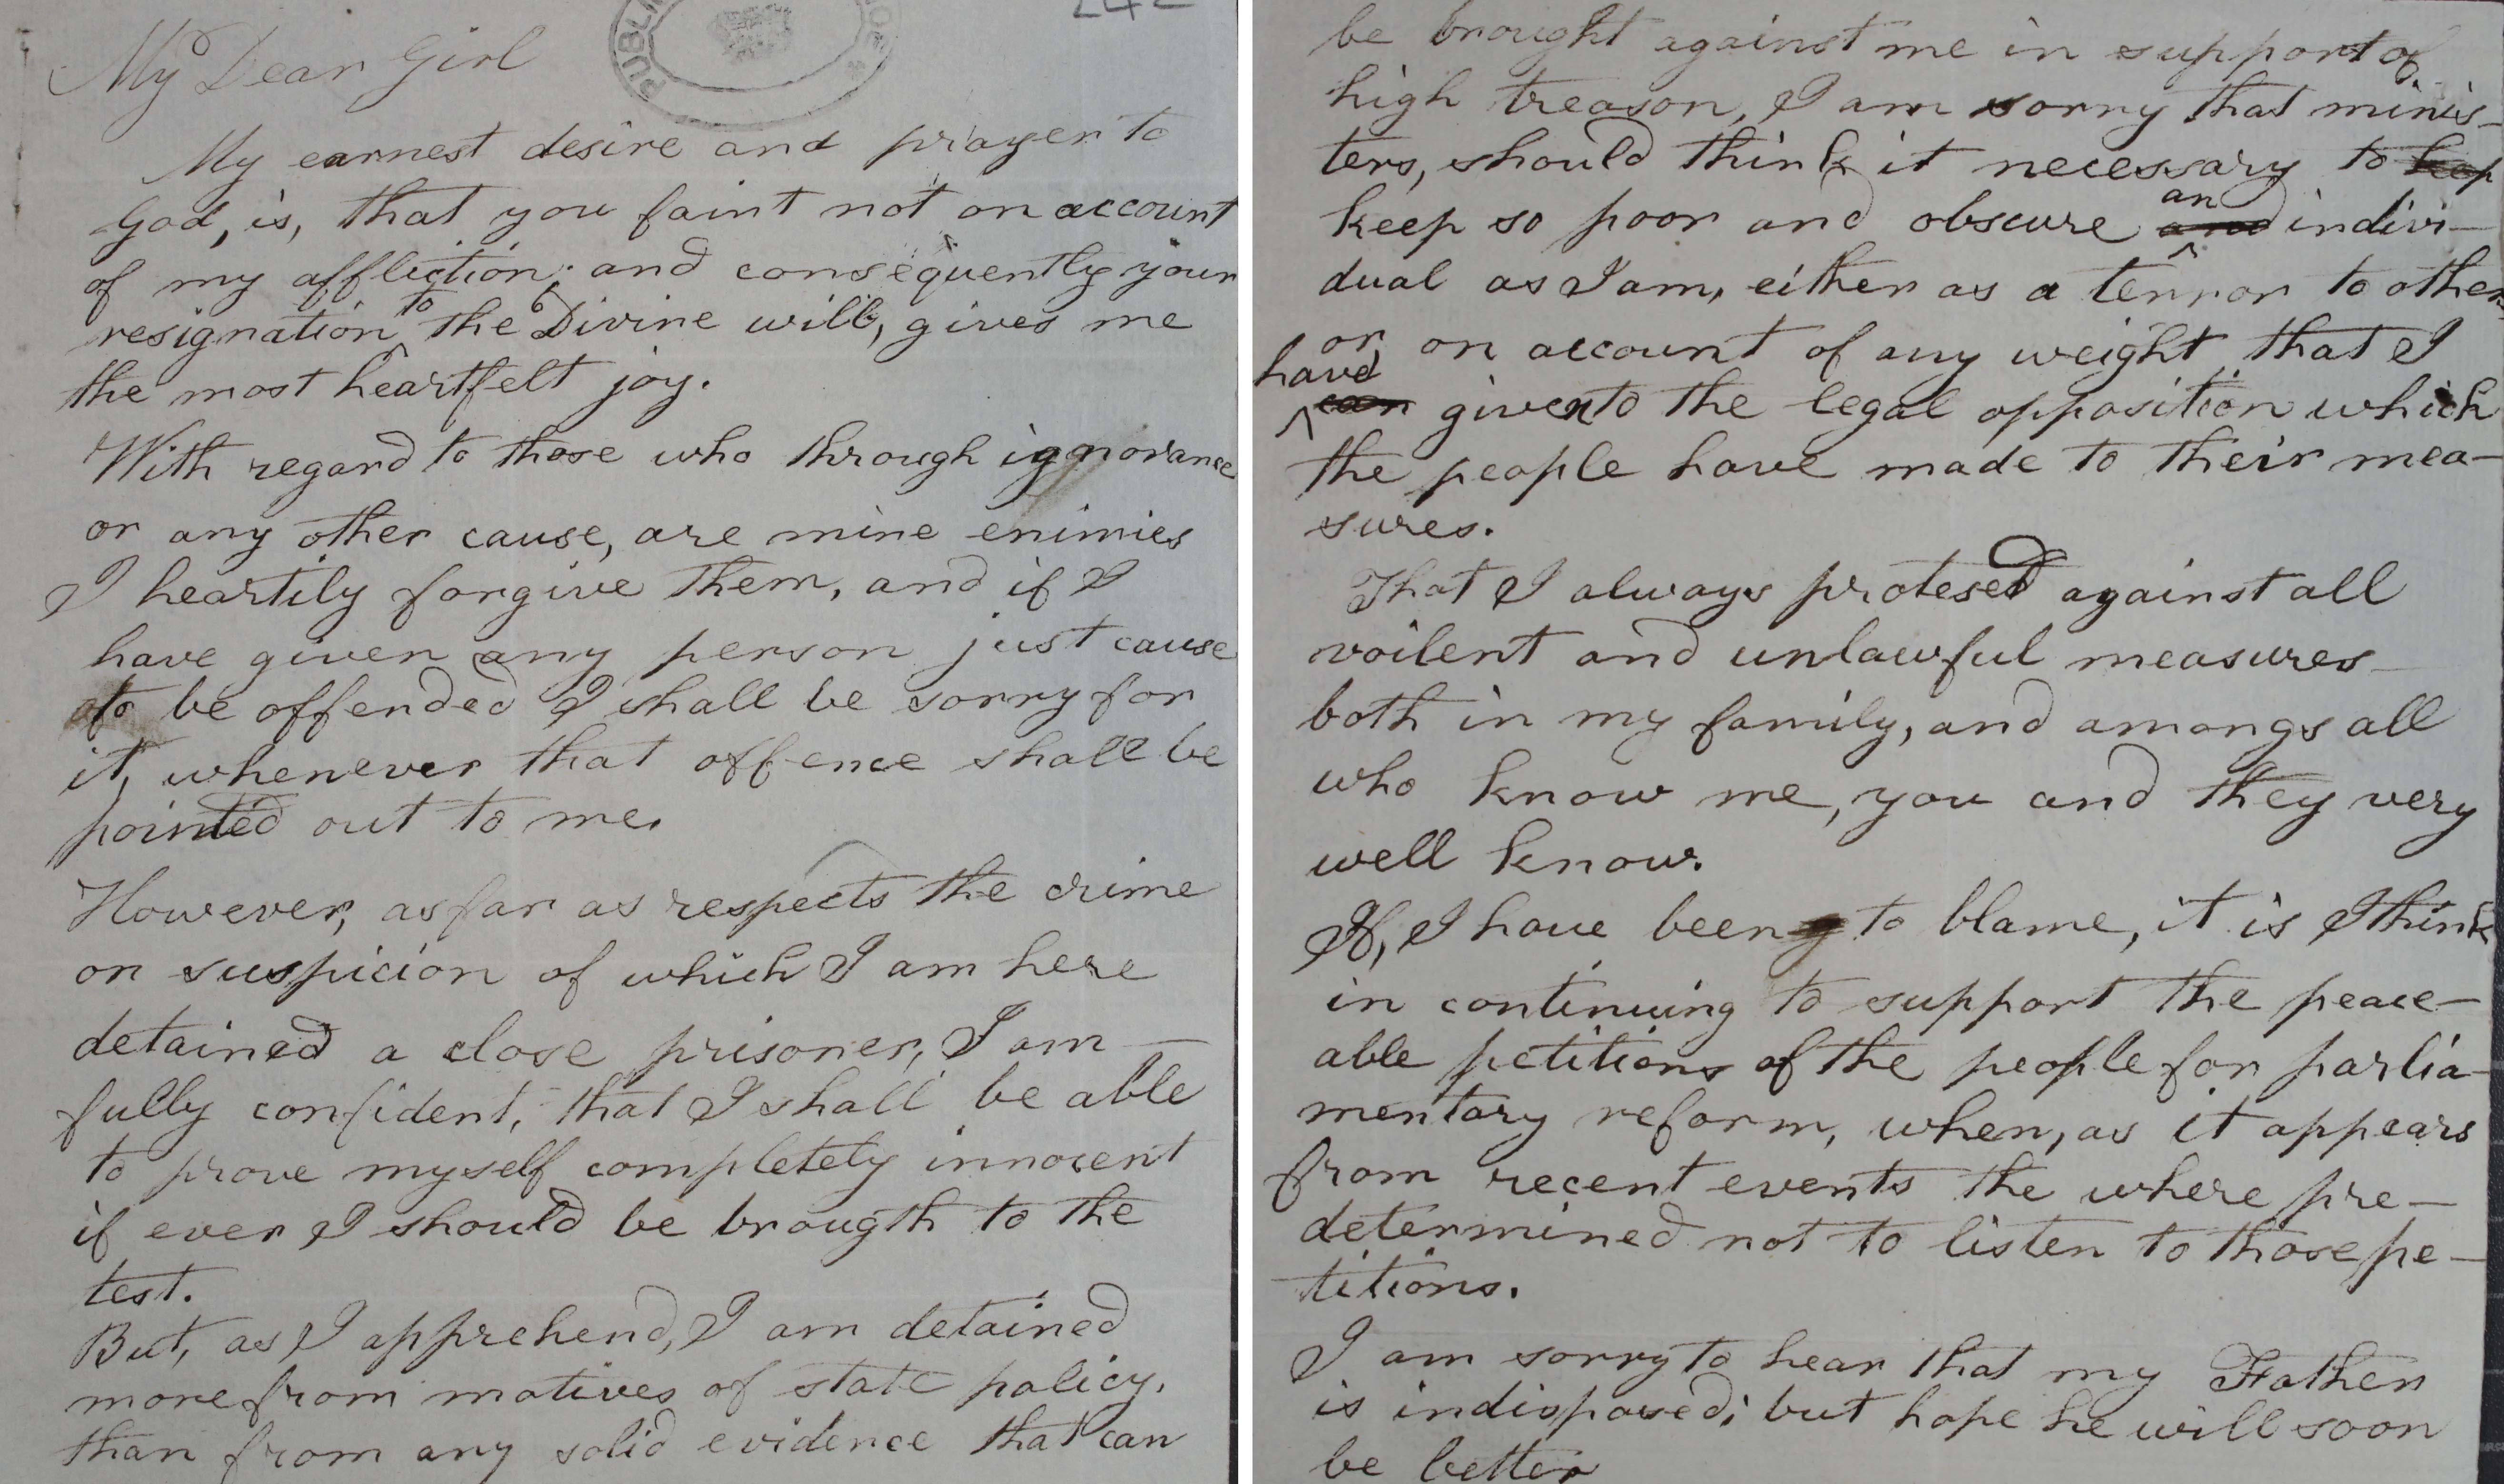 242
PUBLI
My Dear Girl
My earnest desire and prayer to
God, is, that you faint not on account
of my affliction; and consequently your
resignation to the Divine will, gives me
the most heartfelt joy.
With regard to those who through ignorance
or any other cause, are mine enimies
I heartily forgive them, and if I
have given any person just cause
to be offended I shall be sorry for
it, whenever that offence shall be
pointed out to me.
However, as far as respects the crime
on suspicion of which I am here
detained a close prisoner, I am
fully confident, that I shall be able
to prove myself completely innocent
if ever I should be brougth to the
test.
But, as I apprehend, I am detained
more from motives of state policy,
than from any solid evidence that can
be brought against me in support of
high treason, I am sorry that minis-
ters, should think it necessary to keep
keep so poor and obscure and an indivi-
dual as I am, either as a terror to others
or on account of any weight that I
have can given to the legal opposition which
the people have made to their mea-
sures.
That I always protesed against all
voilent and unlawful measures
both in my family, and amongs all
who know me, you and they very
well know.
If, I have been to blame, it is I think
in continuing to support the peace-
able petitions of the people for parlia-
mentary reform, when, as it appears
from recent events the where pre-
determined not to listen to those pe-
titions.
I am sorry to hear that my Father
is indisposed; but hope he will soon
be better